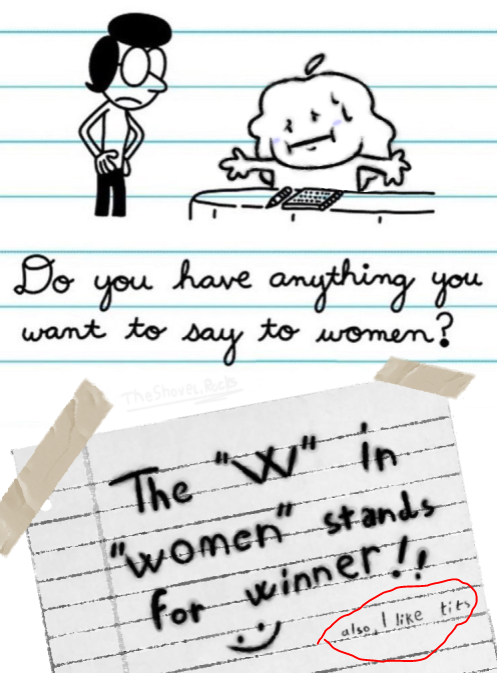 Do you have anything you
want to say to women?
TheShovel.Rocks
The "W" in
"women" stands
for winner!!
:)
also, I like tits